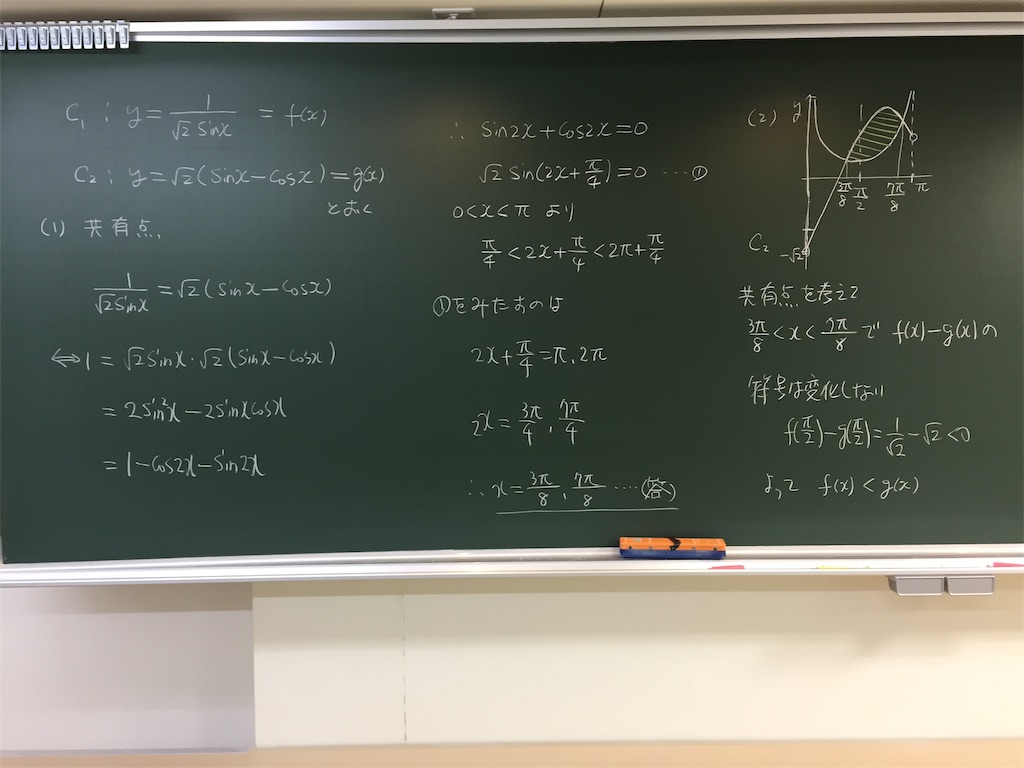 C₁ : y = 1/(√2 sinx) = f(x)
C₂ : y = √2(sinx - cosx) = g(x)
とおく
(1) 共有点、
1/(√2 sinx) = √2(sinx - cosx)
⇔ 1 = √2 sinx・√2(sinx - cosx)
= 2sin²x - 2sinxcosx
= 1 - cos2x - sin2x
∴ sin2x + cos2x = 0
√2 sin(2x + π/4) = 0 ‥‥①
0 < x < π より
π/4 < 2x + π/4 < 2π + π/4
①をみたすのは
2x + π/4 = π, 2π
2x = 3π/4, 7π/4
∴ x = 3π/8, 7π/8 ‥‥(答)
(2)
y
3π/8 π/2 7π/8 π
C₂
-√2
共有点を考えて
3π/8 < x < 7π/8 で f(x) - g(x) の
符号は変化しない
f(π/2) - g(π/2) = 1/√2 - √2 < 0
よって f(x) < g(x)